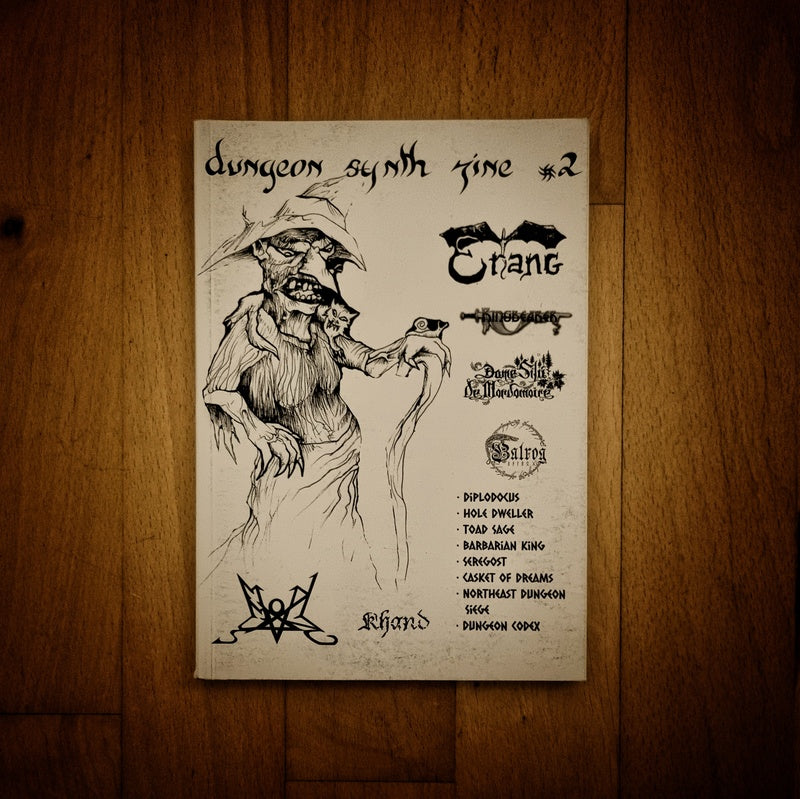 dungeon synth zine #2
Erang
RINGBEARER
Dame Silú
De Mordomoire
Balrog
· DIPLODOCUS
· HOLE DWELLER
· TOAD SAGE
· BARBARIAN KING
· SEREGOST
· CASKET OF DREAMS
· NORTHEAST DUNGEON
SIEGE
· DUNGEON CODEX
Khand